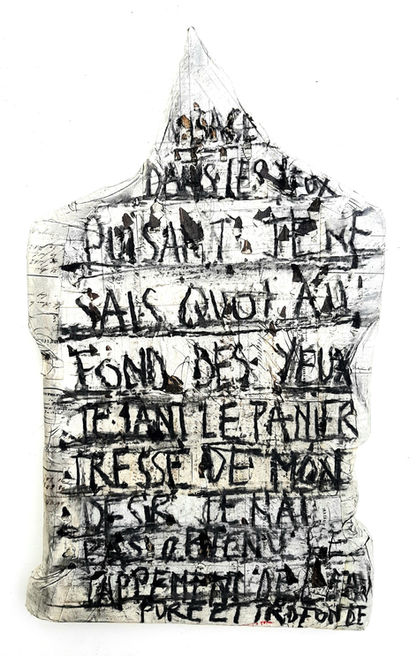 VISAGE
DANS LES YEUX
PUISANT JE NE
SAIS QUOI AU
FOND DES YEUX
JETANT LE PANIER
TRESSE DE MON
DESIR JE N'AI
PAS OBTENU LE
JAPPEMENT DE L'EAU
PURE ET PROFONDE